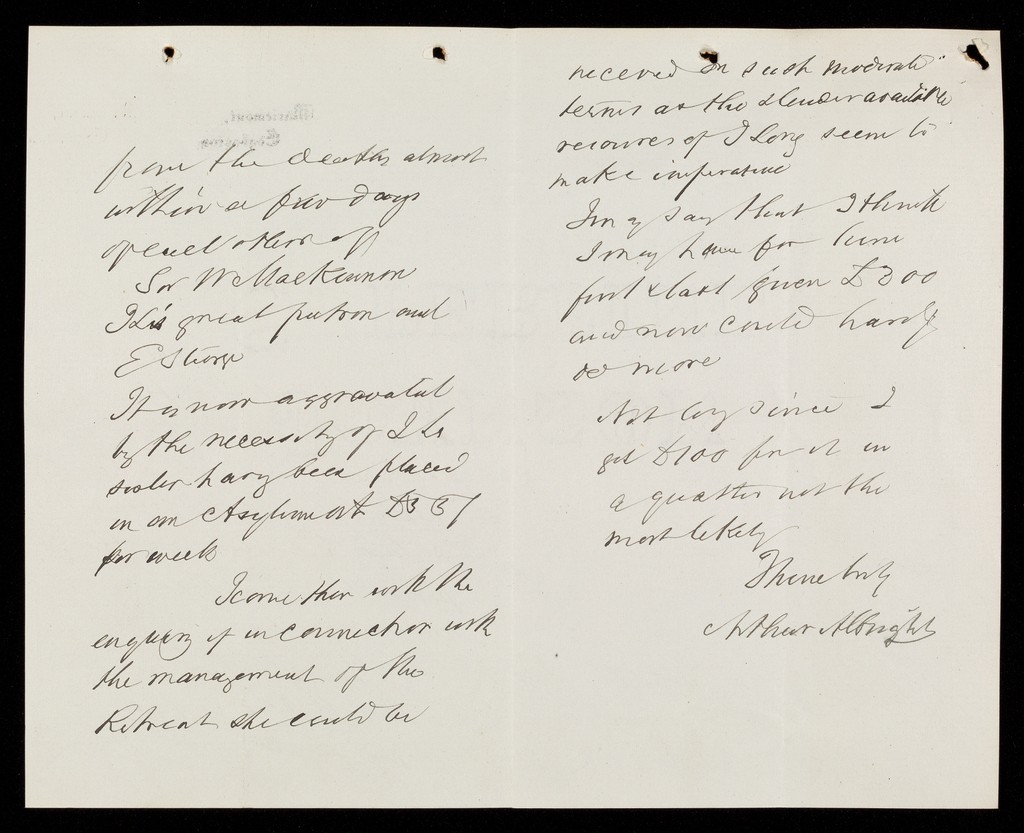 from the deaths almost
within a few days
of each other of
Sir W MacKinnon
JL's great patron and
E Sturge
It is now aggravated
by the necessity of J Ls
sister havg been placed
in an Asylum at
per week
I come then with the
enquiry if in connection with
the management of the
Retreat she could be
received on such moderate
terms as the slender available
resources of J Long seem to
make imperative
I may say that I think
I may have for time
first & last given £300
and now could hardly
do more
Not long since I
got £100 for it in
a quarter not the
most likely
Thine truly
Arthur Albright